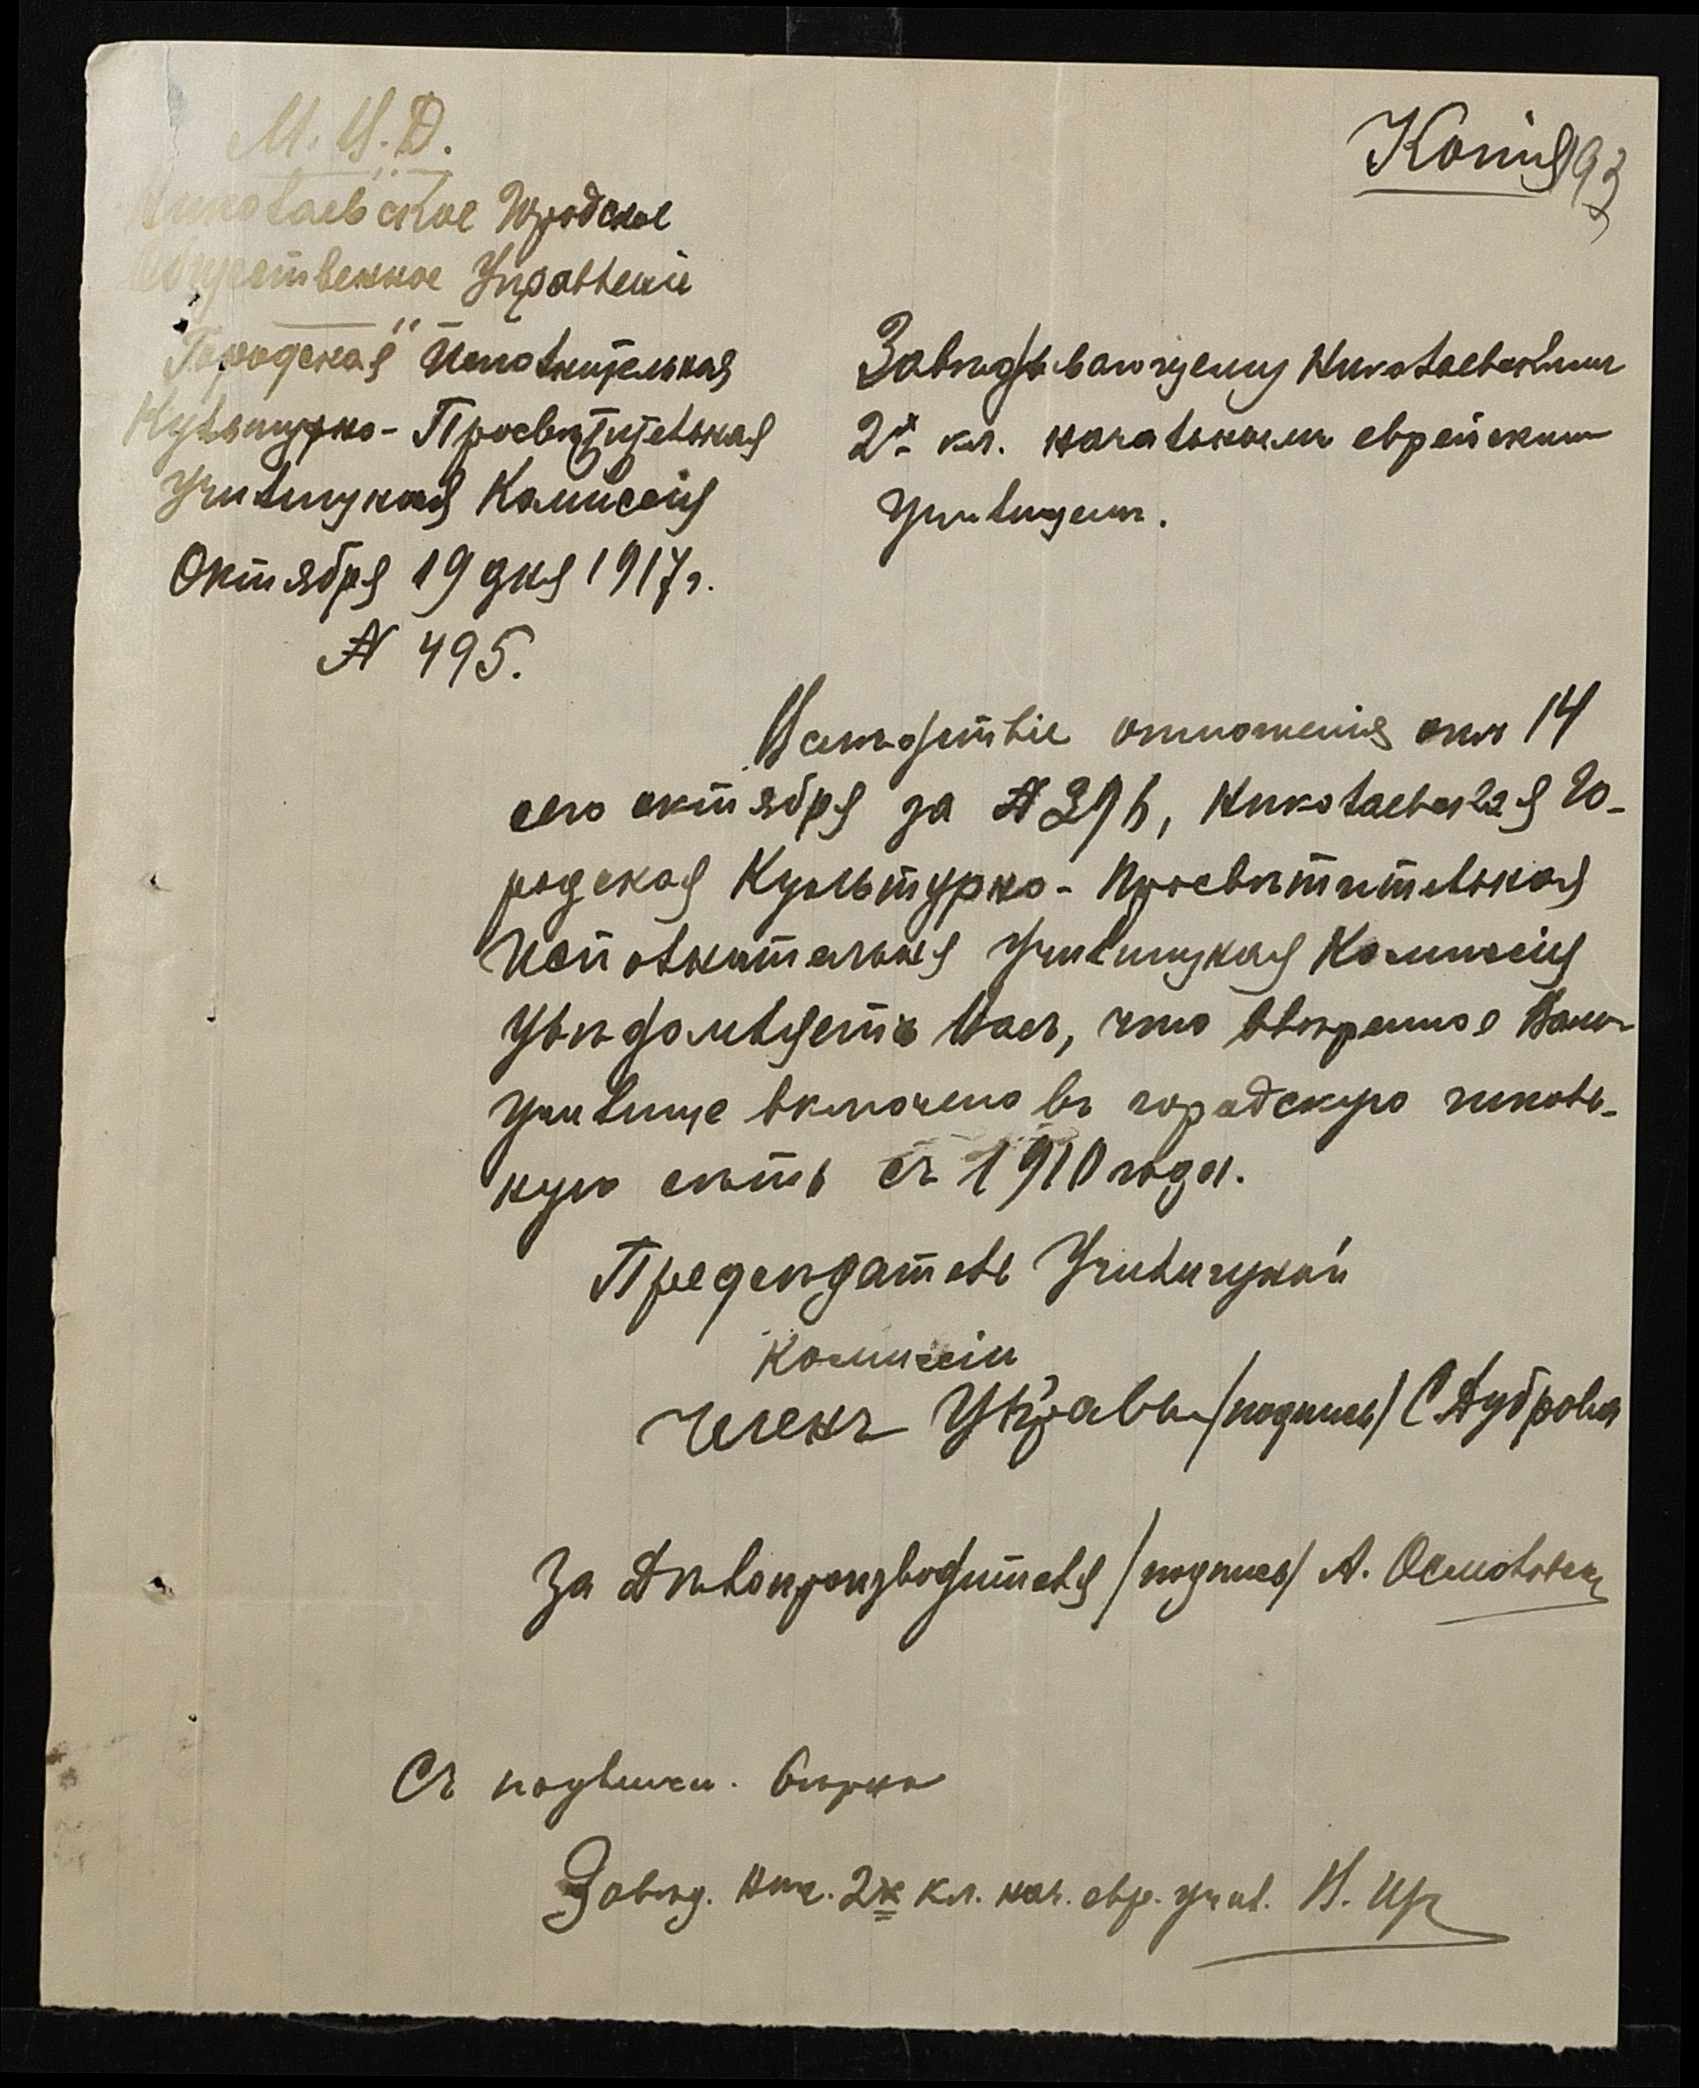 Копія
193
М. В. Д.
Николаевское Городское
Общественное Управленіе
Городская Исполнительная
Культурно-Просвѣтительная
Училищная Комиссія
Октября 19 дня 1917 г.
№ 495.
Завѣдывающему Николаевскимъ
2х кл. начальнымъ еврейскимъ
училищемъ.
Вслѣдствіе отношенія отъ 14
сего октября за № 396, Николаевская Го-
родская Культурно-Просвѣтительная
Исполнительная Училищная Комиссія
увѣдомляетъ Васъ, что ввѣренное Вамъ
училище включено въ городскую школь-
ную сѣть съ 1910 года.
Предсѣдатель Училищной
Комиссіи
Членъ Управы /подпись/ С. Дуброва
За Дѣлопроизводителя /подпись/ А.
Съ подлин. вѣрно
Завѣд. Ник. 2х кл. нач. евр. учил.